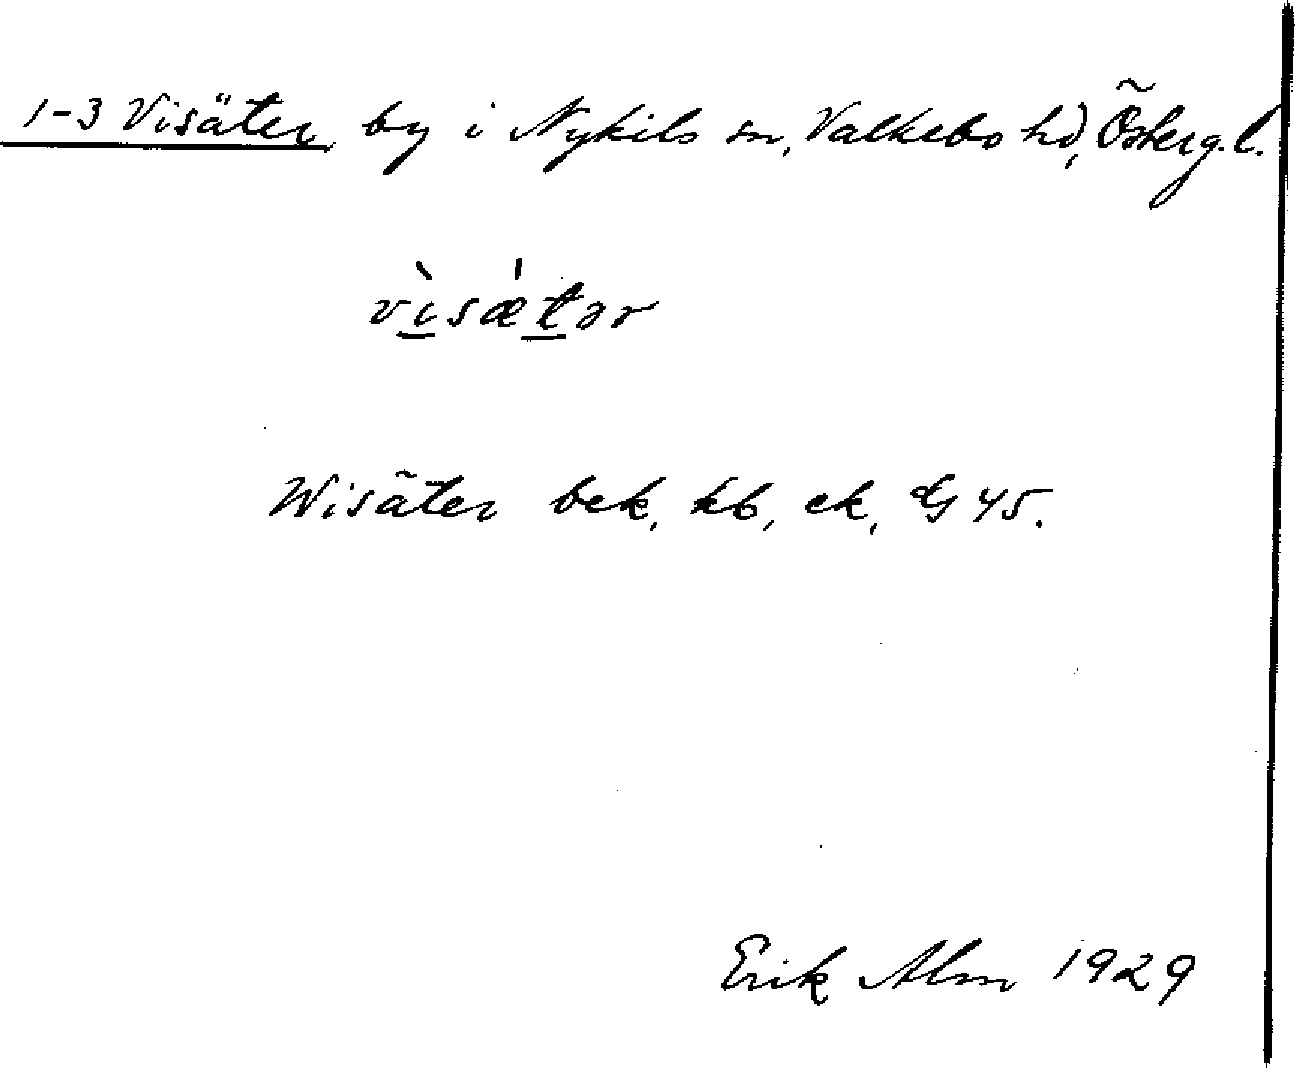 1-3 Visäter by i Nykils sn, Valkebo hd, Österg. l.
vìsǽtər
Wisäter bek, kb, ek, GG 45.
Erik Alm 1929